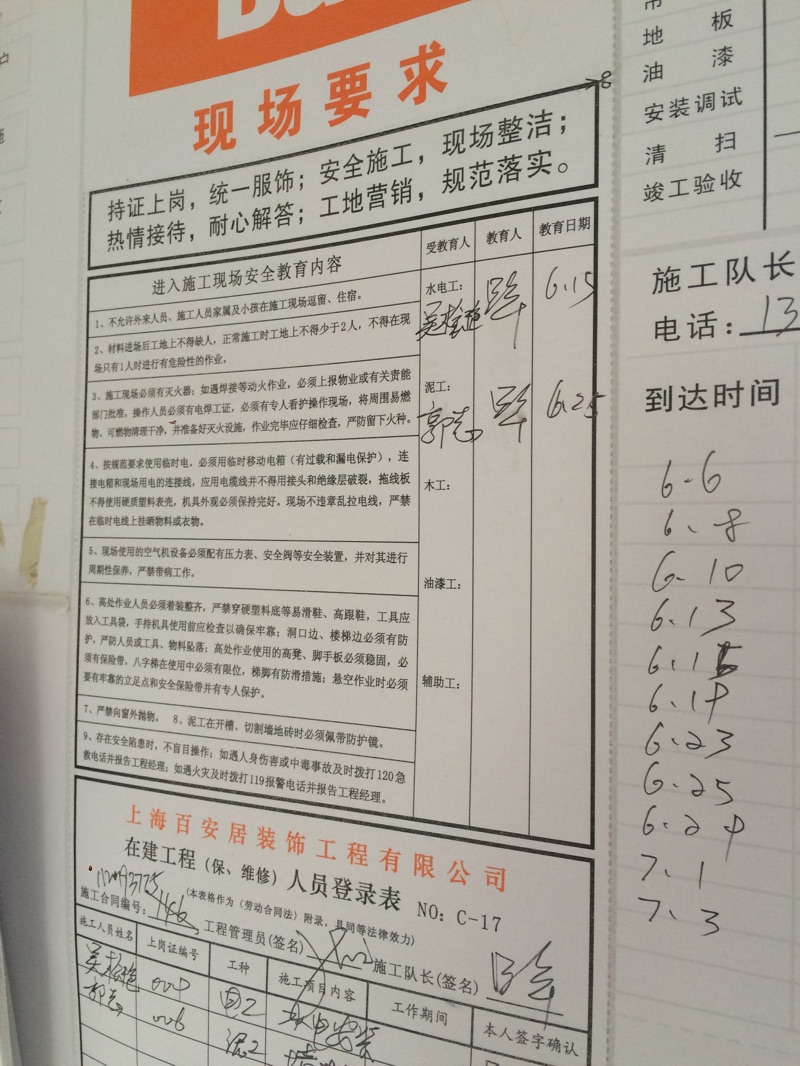 现场要求
持证上岗，统一服饰；安全施工，现场整洁；
热情接待，耐心解答；工地营销，规范落实。
进入施工现场安全教育内容
受教育人
教育人
教育日期
1、不允许外来人员、施工人员家属及小孩在施工现场逗留、住宿。
2、材料进场后工地上不得缺人，正常施工时工地上不得少于2人，不得在现
场只有1人时进行有危险性的作业。
水电工：
6.15
3、施工现场必须有灭火器；如遇焊接等动火作业，必须上报物业或有关责能
部门批准，操作人员必须有电焊工证，必须有专人看护操作现场，将周围易燃
物、可燃物清理干净，并准备好灭火设施，作业完毕应仔细检查，严防留下火种。
泥工：
郭志
6.25
4、按规范要求使用临时电，必须用临时移动电箱（有过载和漏电保护），连
接电箱和现场用电的连接线，应用电缆线并不得用接头和绝缘层破裂，拖线板
不得使用硬质塑料表壳，机具外观必须保持完好。现场不违章乱拉电线，严禁
在临时电线上挂晒物料或衣物。
木工：
5、现场使用的空气机设备必须配有压力表、安全阀等安全装置，并对其进行
周期性保养，严禁带病工作。
油漆工：
6、高处作业人员必须着装整齐，严禁穿硬塑料底等易滑鞋、高跟鞋，工具应
放入工具袋，手持机具使用前应检查以确保牢靠；洞口边、楼梯边必须有防
护，严防人员或工具、物料坠落；高处作业使用的高凳、脚手板必须稳固，必
须有保险带，八字梯在使用中必须有限位，梯脚有防滑措施；悬空作业时必须
要有牢靠的立足点和安全保险带并有专人保护。
辅助工：
7、严禁向窗外抛物。 8、泥工在开槽、切割墙地砖时必须佩带防护镜。
9、存在安全陷患时，不盲目操作；如遇人身伤害或中毒事故及时拨打120急
救电话并报告工程经理；如遇火灾及时拨打119报警电话并报告工程经理。
上海百安居装饰工程有限公司
在建工程（保、维修）人员登录表 NO：C-17
（本表格作为《劳动合同法》附录，具同等法律效力）
施工合同编号：
工程管理员(签名)
施工队长(签名)
施工人员姓名
上岗证编号
工种
施工项目内容
工作期间
本人签字确认
郭志
006
泥工
地板
油漆
安装调试
清扫
竣工验收
施工队长
电话：13
到达时间
6-6
6.8
6-10
6.13
6.15
6.23
6.25
7.1
7.3